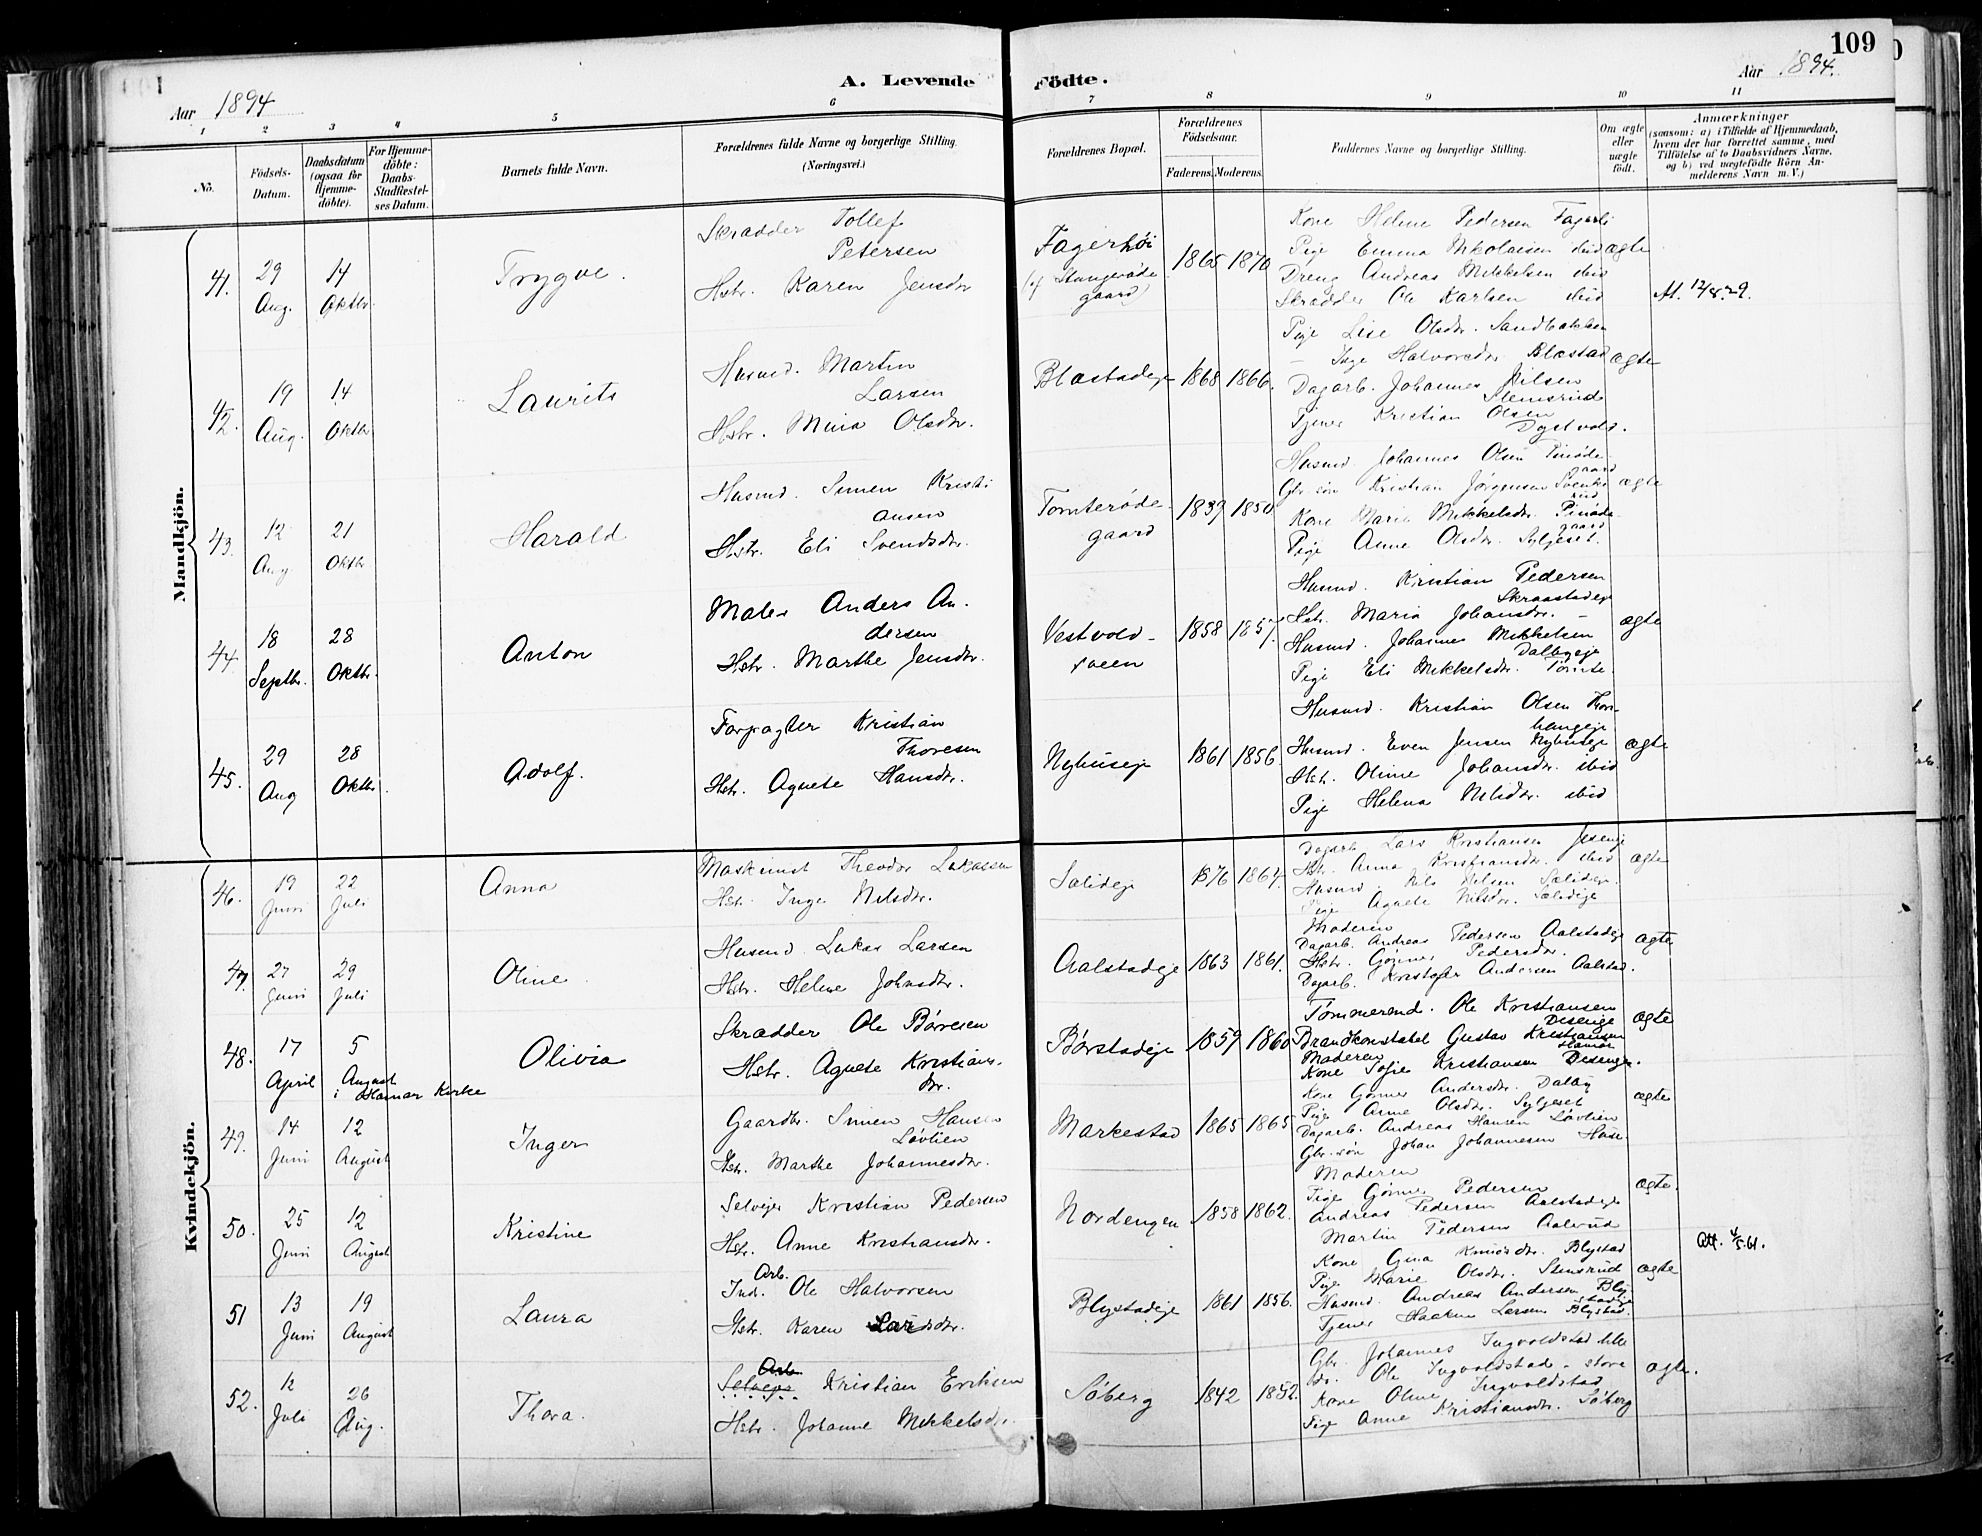 109
A. Levende Födte.
Aar 1894
Aar 1894.
1 2 3 4 5 6 7 8 9 10 11
No.
Födsels-Datum.
Daabsdatum (ogsaa for Hjemmedöbte).
For Hjemmedöbte: Daabs-Stadfæstelses Datum.
Barnets fulde Navn.
Forældrenes fulde Navne og borgerlige Stilling. (Næringsvei.)
Forældrenes Bopæl.
Forældrenes Födselsaar.
Faderens. Moderens.
Faddernes Navne og borgerlige Stilling.
Om ægte eller uægte födt.
Anmærkninger
(saasom: a) i Tilfælde af Hjemmedaab, hvem der har forrettet samme, med Tilföielse af to Daabsvidners Navne, og b) ved uægtefödte Börn Anmelderens Navn m. V.)
Mandkjön.
41. 29 Aug. 14 Oktbr. Trygve.
Skrædder Tollef Petersen
Hstr. Karen Jensdr
Fagerhöi (af Stangerøde gaard)
1865 1870
Kone Helene Pedersen Fagerli
Pige Emma Nikolaisen ibid
Dreng Andreas Mikkelsen ibid
Skrædder Ole Karlsen ibid
ægte
At. 12/8.29.
42. 19 Aug. 14 Oktbr Laurits
Husmd. Martin Larsen
Hstr. Mina Olsdr.
Blæstadeje 1868 1866.
Pige Lise Olsdr. Sandbakken
— Inge Halvorsdr. Blæstad
Dagarb. Johannes Nilsen Stensrud
Tjener Kristian Olsen Dystvold.
ægte
43. 12 Aug. 21 Oktbr Harald
Husmd. Simen Kristiansen
Hstr. Eli Svendsdr.
Tomterødegaard 1839 1850
Husmd Johannes Olsen Finødegaard
Gbr.søn Kristian Jørgensen Svenkerud
Kone Maria Mikkelsdr. Finødegaard
Pige Anne Olsdr. Syljeset.
ægte
44. 18 Septbr. 28 Oktbr. Anton
Maler Anders Andersen
Hstr. Marthe Jensdr.
Vestvoldsveen 1858 1857.
Husmd. Kristian Pedersen Skraastadeje
Hstr. Maria Johansdr. —
Husmd. Johannes Mikkelsen Dalbyeje
Pige Eli Mikkelsdr. Tomte.
ægte
45. 29 Aug 28 Oktbr. Adolf.
Forpagter Kristian Thoresen
Hstr. Agnete Hansdr.
Nyhuseje 1861 1856
Husmd. Kristian Olsen
Husmd. Even Jensen Nyhuseje
Hstr. Oline Johansdr. ibid
Pige Helena Nilsdr. ibid
ægte
Kvindekjön.
46. 19 Juni 22 Juli Anna
Maskinist Theodor Lukassen
Hstr. Inge Nilsdr.
Sælideje 1876 1864.
Dagarb. Lars Kristiansen
Hstr. Anna Kristiansdr. ibid
Husmd. Nils Nilsen Sælideje
Pige Agnete Nilsdr. Sælideje
ægte
47. 27 Juni 29 Juli Oline
Husmd. Lukas Larsen
Hstr. Helene Johnsdr.
Aalstadeje 1863 1861.
Moderen
Dagarb. Andreas Pedersen Aalstadeje
Hstr. Gønner Pedersdr.
Dagarb. Kristofer Andersen Aalstad.
ægte
48. 17 April 5 August i Hamar Kirke Olivia
Skrædder Ole Børresen
Hstr. Agnete Kristiansdr.
Børstadeje 1859 1860
Tømmermd. Ole Kristiansen Diseneje
Brandkonstabel Gustav Kristiansen Hamar
Moderen
Kone Sofie Kristiansen Disenge.
ægte
49. 14 Juni 12 August Inger
Gaardbr. Simen Hansen Løvlien
Hstr. Marthe Johannesdr.
Markestad 1865 1865
Kone Gønner Andersdr. Dalby
Pige Anne Olsdr. Syljeset
Dagarb. Andreas Hansen Løvlien
Gbr.søn Johan Johannesen
ægte
50. 25 Juni 12 August Kristine
Selvejer Kristian Pedersen
Hstr. Anne Kristiansdr.
Nordengen 1858 1862.
Moderen
Pige Gønner Pedersen
Andreas Pedersen Aalstadeje
Martin Pedersen Aalerud
ægte.
Att. 4/5.61.
51 13 Juni 19 August Laura
Ind. Arb. Ole Halvorsen
Hstr. Karen Larsdr.
Blystadeje 1861 1856.
Kone Gina Knudsdr. Blystad
Pige Marie Olsdr. Stensrud
Husmd. Andreas Andersen Blystadeje
Tjener Haaken Larsen Blystad.
ægte
52. 12 Juli 26 Aug. Thora.
Selvejer Arb. Kristian Eriksen
Hstr. Johanne Mikkelsdr.
Søberg 1842 1852.
Gbr. Johannes Ingvoldstad lille
do. Ole Ingvoldstad store
Kone Oline Ingvoldstad
Pige Anne Kristiansdr. Søberg
ægte.